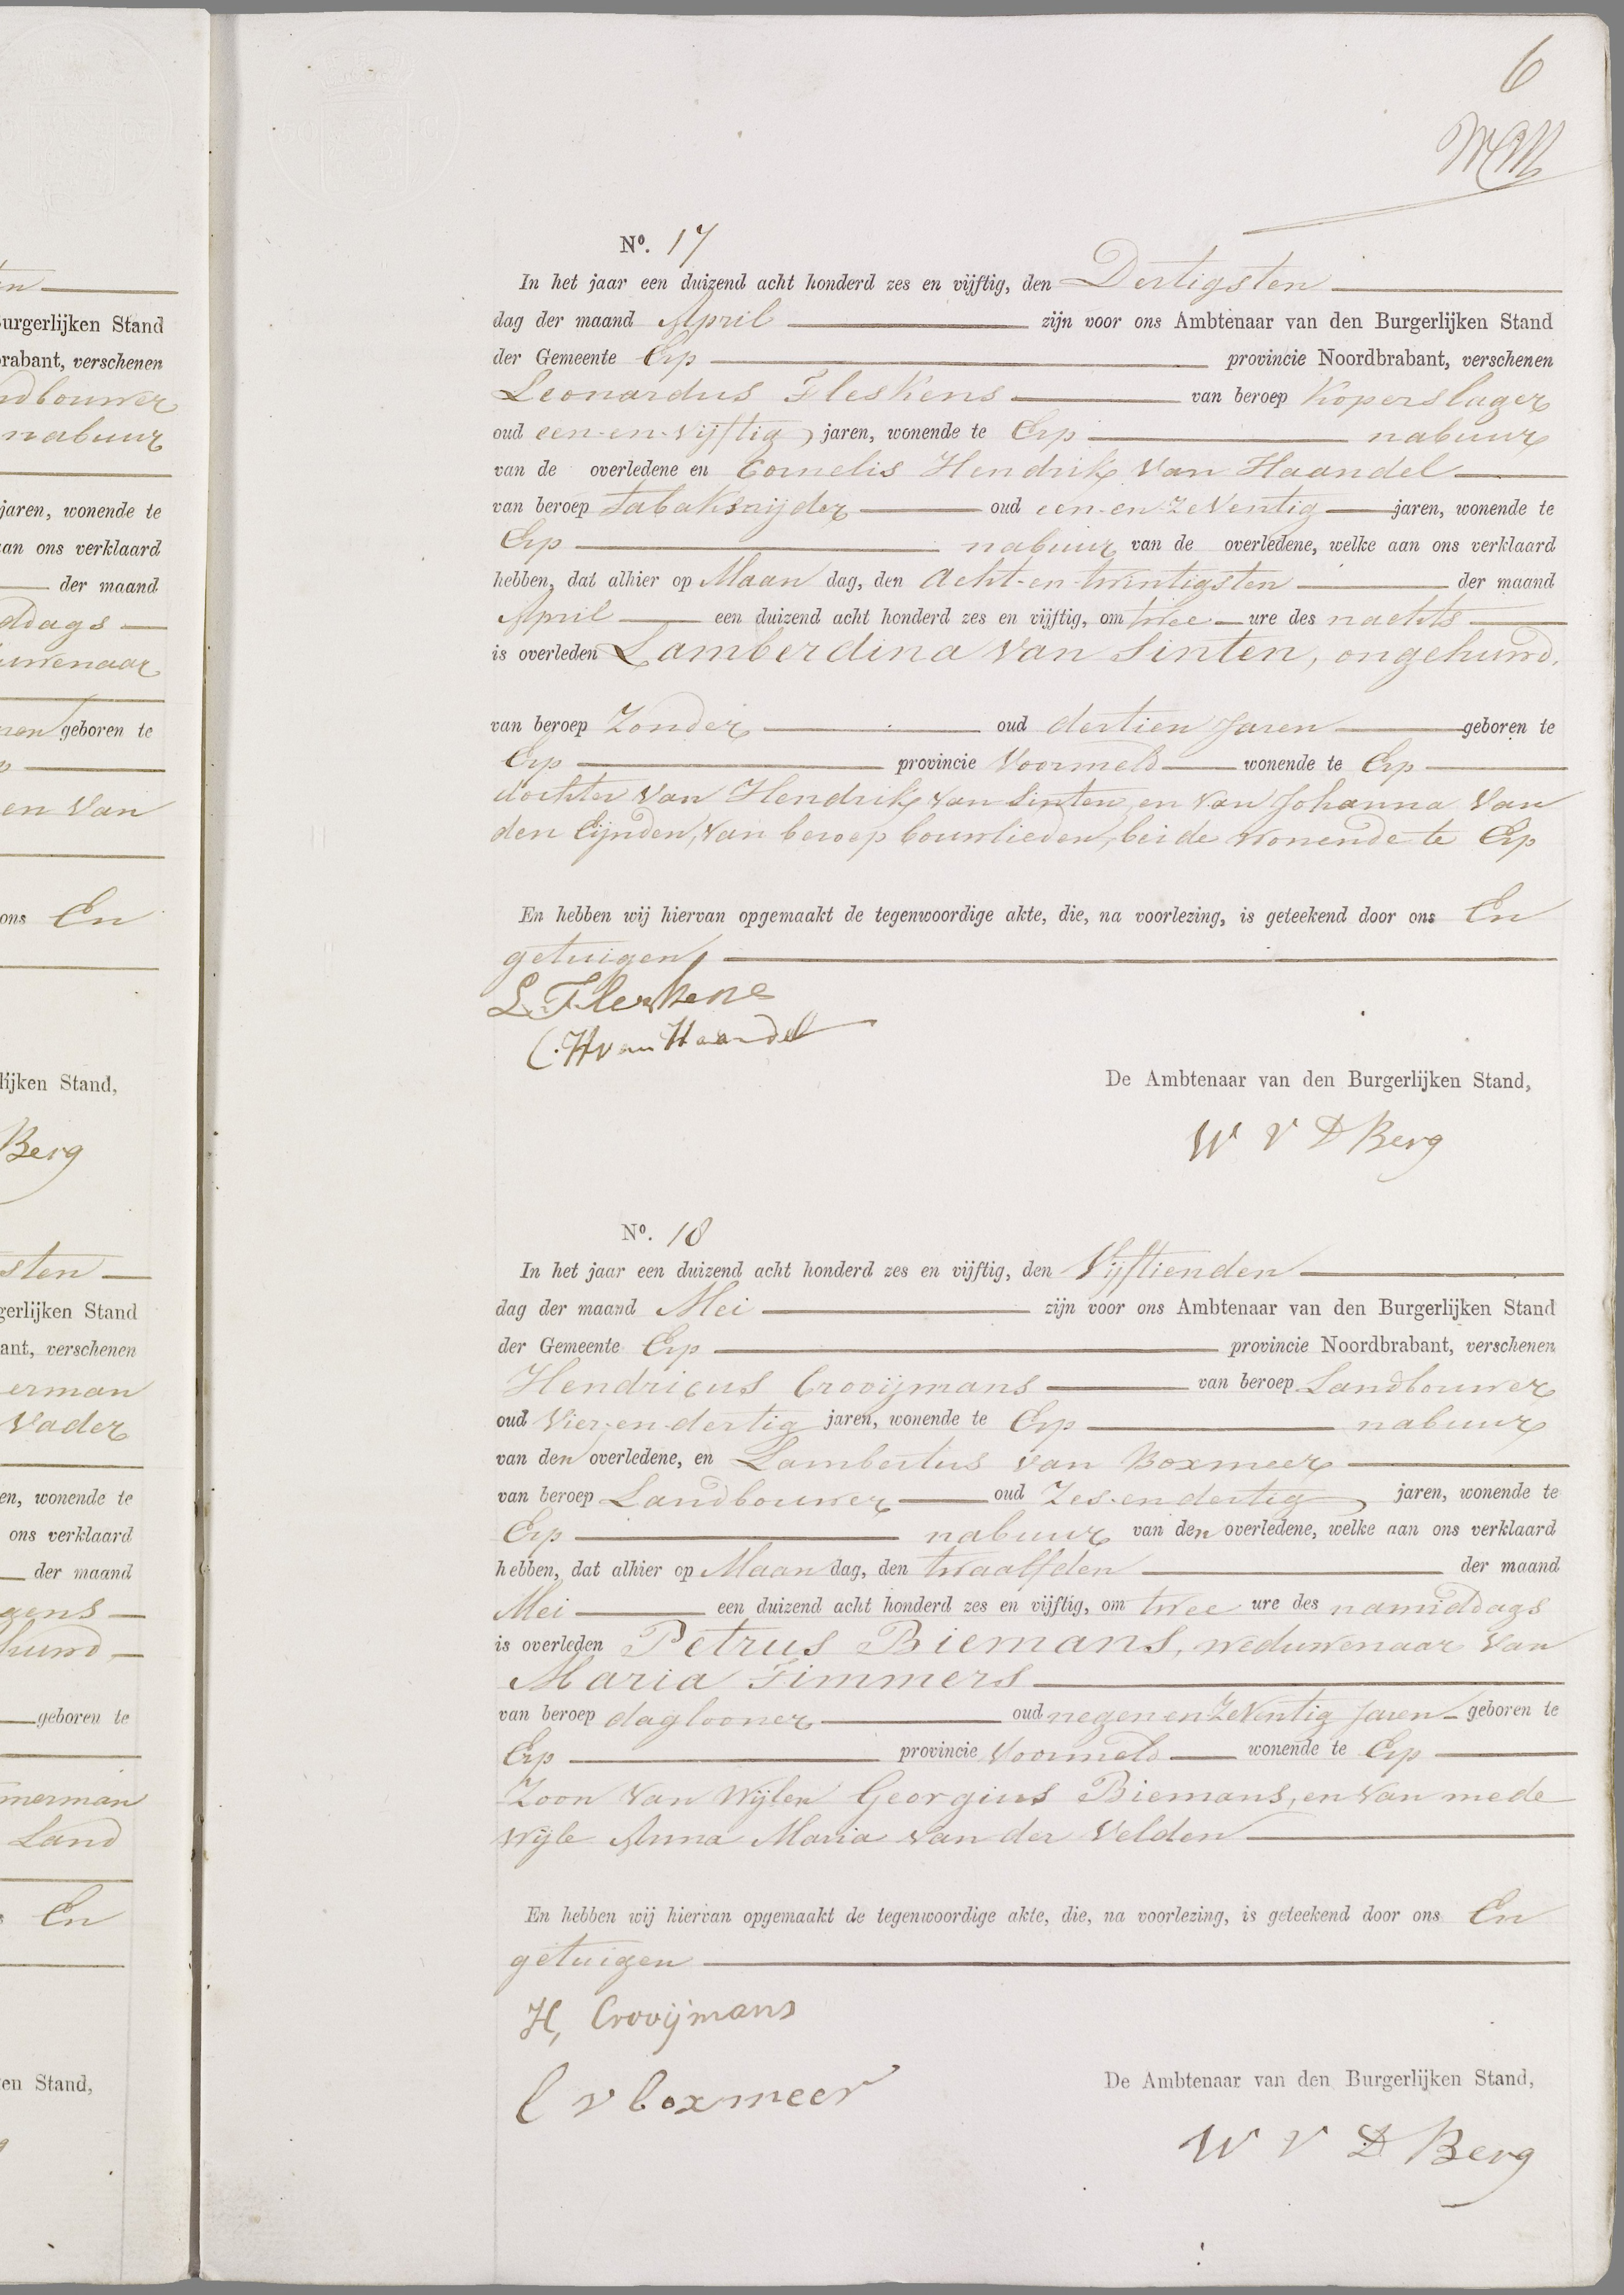 6
No. 17
In het jaar een duizend acht honderd zes en vijftig, den Dertigsten
dag der maand April zijn voor ons Ambtenaar van den Burgerlijken Stand
der Gemeente Erp provincie Noordbrabant, verschenen
Leonardus Fleskens van beroep Koperslager
oud een-en-vijftig jaren, wonende te Erp nabuur
van de overledene en Cornelis Hendrik van Haandel
van beroep tabaksnijder oud een-en-zeventig jaren, wonende te
Erp nabuur van de overledene, welke aan ons verklaard
hebben, dat alhier op Maan dag, den acht-en-twintigsten der maand
April een duizend acht honderd zes en vijftig, om twee ure des nachts
is overleden Lamberdina van Sinten, ongehuwd.
van beroep Zonder oud dertien Jaren geboren te
Erp provincie Voormeld wonende te Erp
dochter van Hendrik van Sinten, en van Johanna van
den Eijnden, van beroep bouwlieden, beide wonende te Erp
En hebben wij hiervan opgemaakt de tegenwoordige akte, die, na voorlezing, is geteekend door ons En
getuigen
L. Fleskens
C. H van Haandel
De Ambtenaar van den Burgerlijken Stand,
W V D Berg
No. 18
In het jaar een duizend acht honderd zes en vijftig, den Vijftienden
dag der maand Mei zijn voor ons Ambtenaar van den Burgerlijken Stand
der Gemeente Erp provincie Noordbrabant, verschenen
Hendricus Crooijmans van beroep Landbouwer
oud Vier-en-dertig jaren, wonende te Erp nabuur
van den overledene, en Lambertus van Boxmeer
van beroep Landbouwer oud Zes-en-dertig jaren, wonende te
Erp nabuur van den overledene, welke aan ons verklaard
hebben, dat alhier op Maan dag, den twaalfden der maand
Mei een duizend acht honderd zes en vijftig, om twee ure des namiddags
is overleden Petrus Biemans, weduwenaar van
Maria Timmers
van beroep daglooner oud negen en Zeventig Jaren geboren te
Erp provincie Voormeld wonende te Erp
Zoon van Wijlen Georgius Biemans, en van mede
wijle Anna Maria van der Velden
En hebben wij hiervan opgemaakt de tegenwoordige akte, die, na voorlezing, is geteekend door ons En
getuigen
H, Crooijmans
l v boxmeer
De Ambtenaar van den Burgerlijken Stand,
W V D Berg